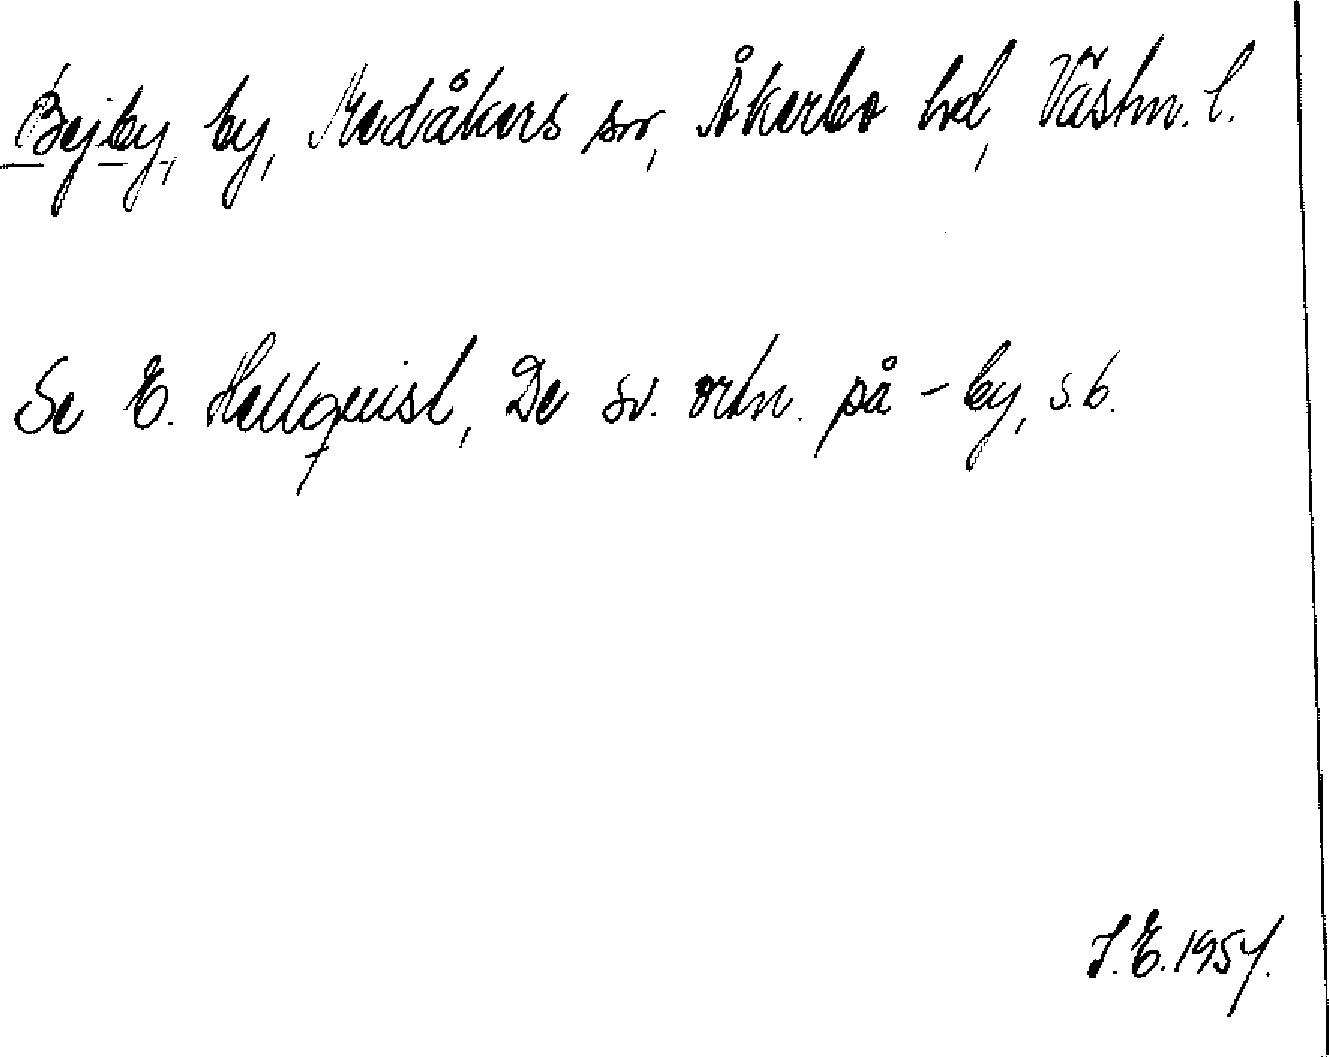 Bejby, by, Medåkers sn, Åkerbo hd, Västm. l.
Se E. Hellquist, De sv. ortn. på -by, s. 6.
I. E. 1954.